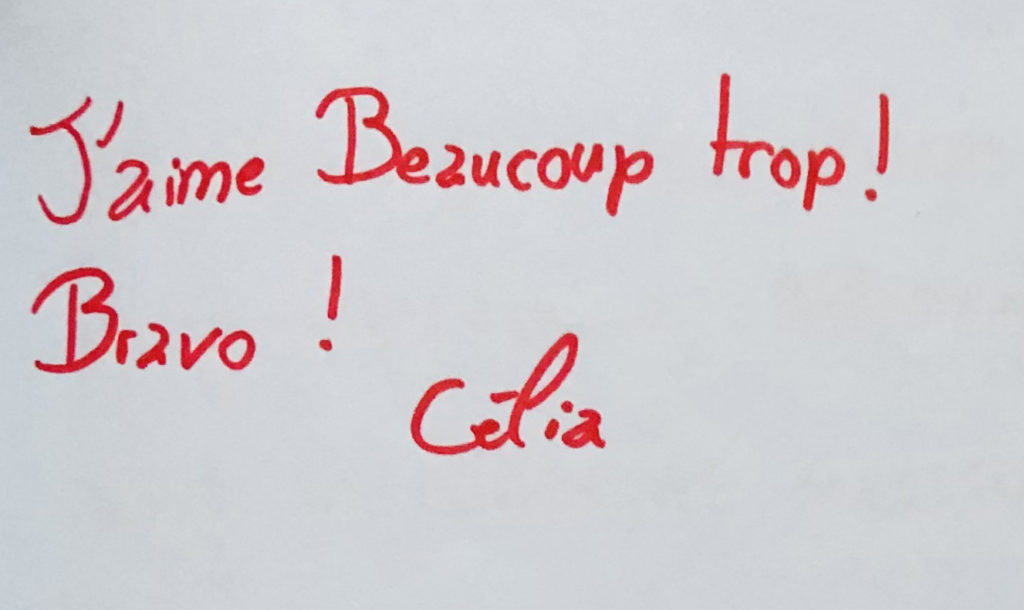 J'aime Beaucoup trop!
Bravo !
Célia